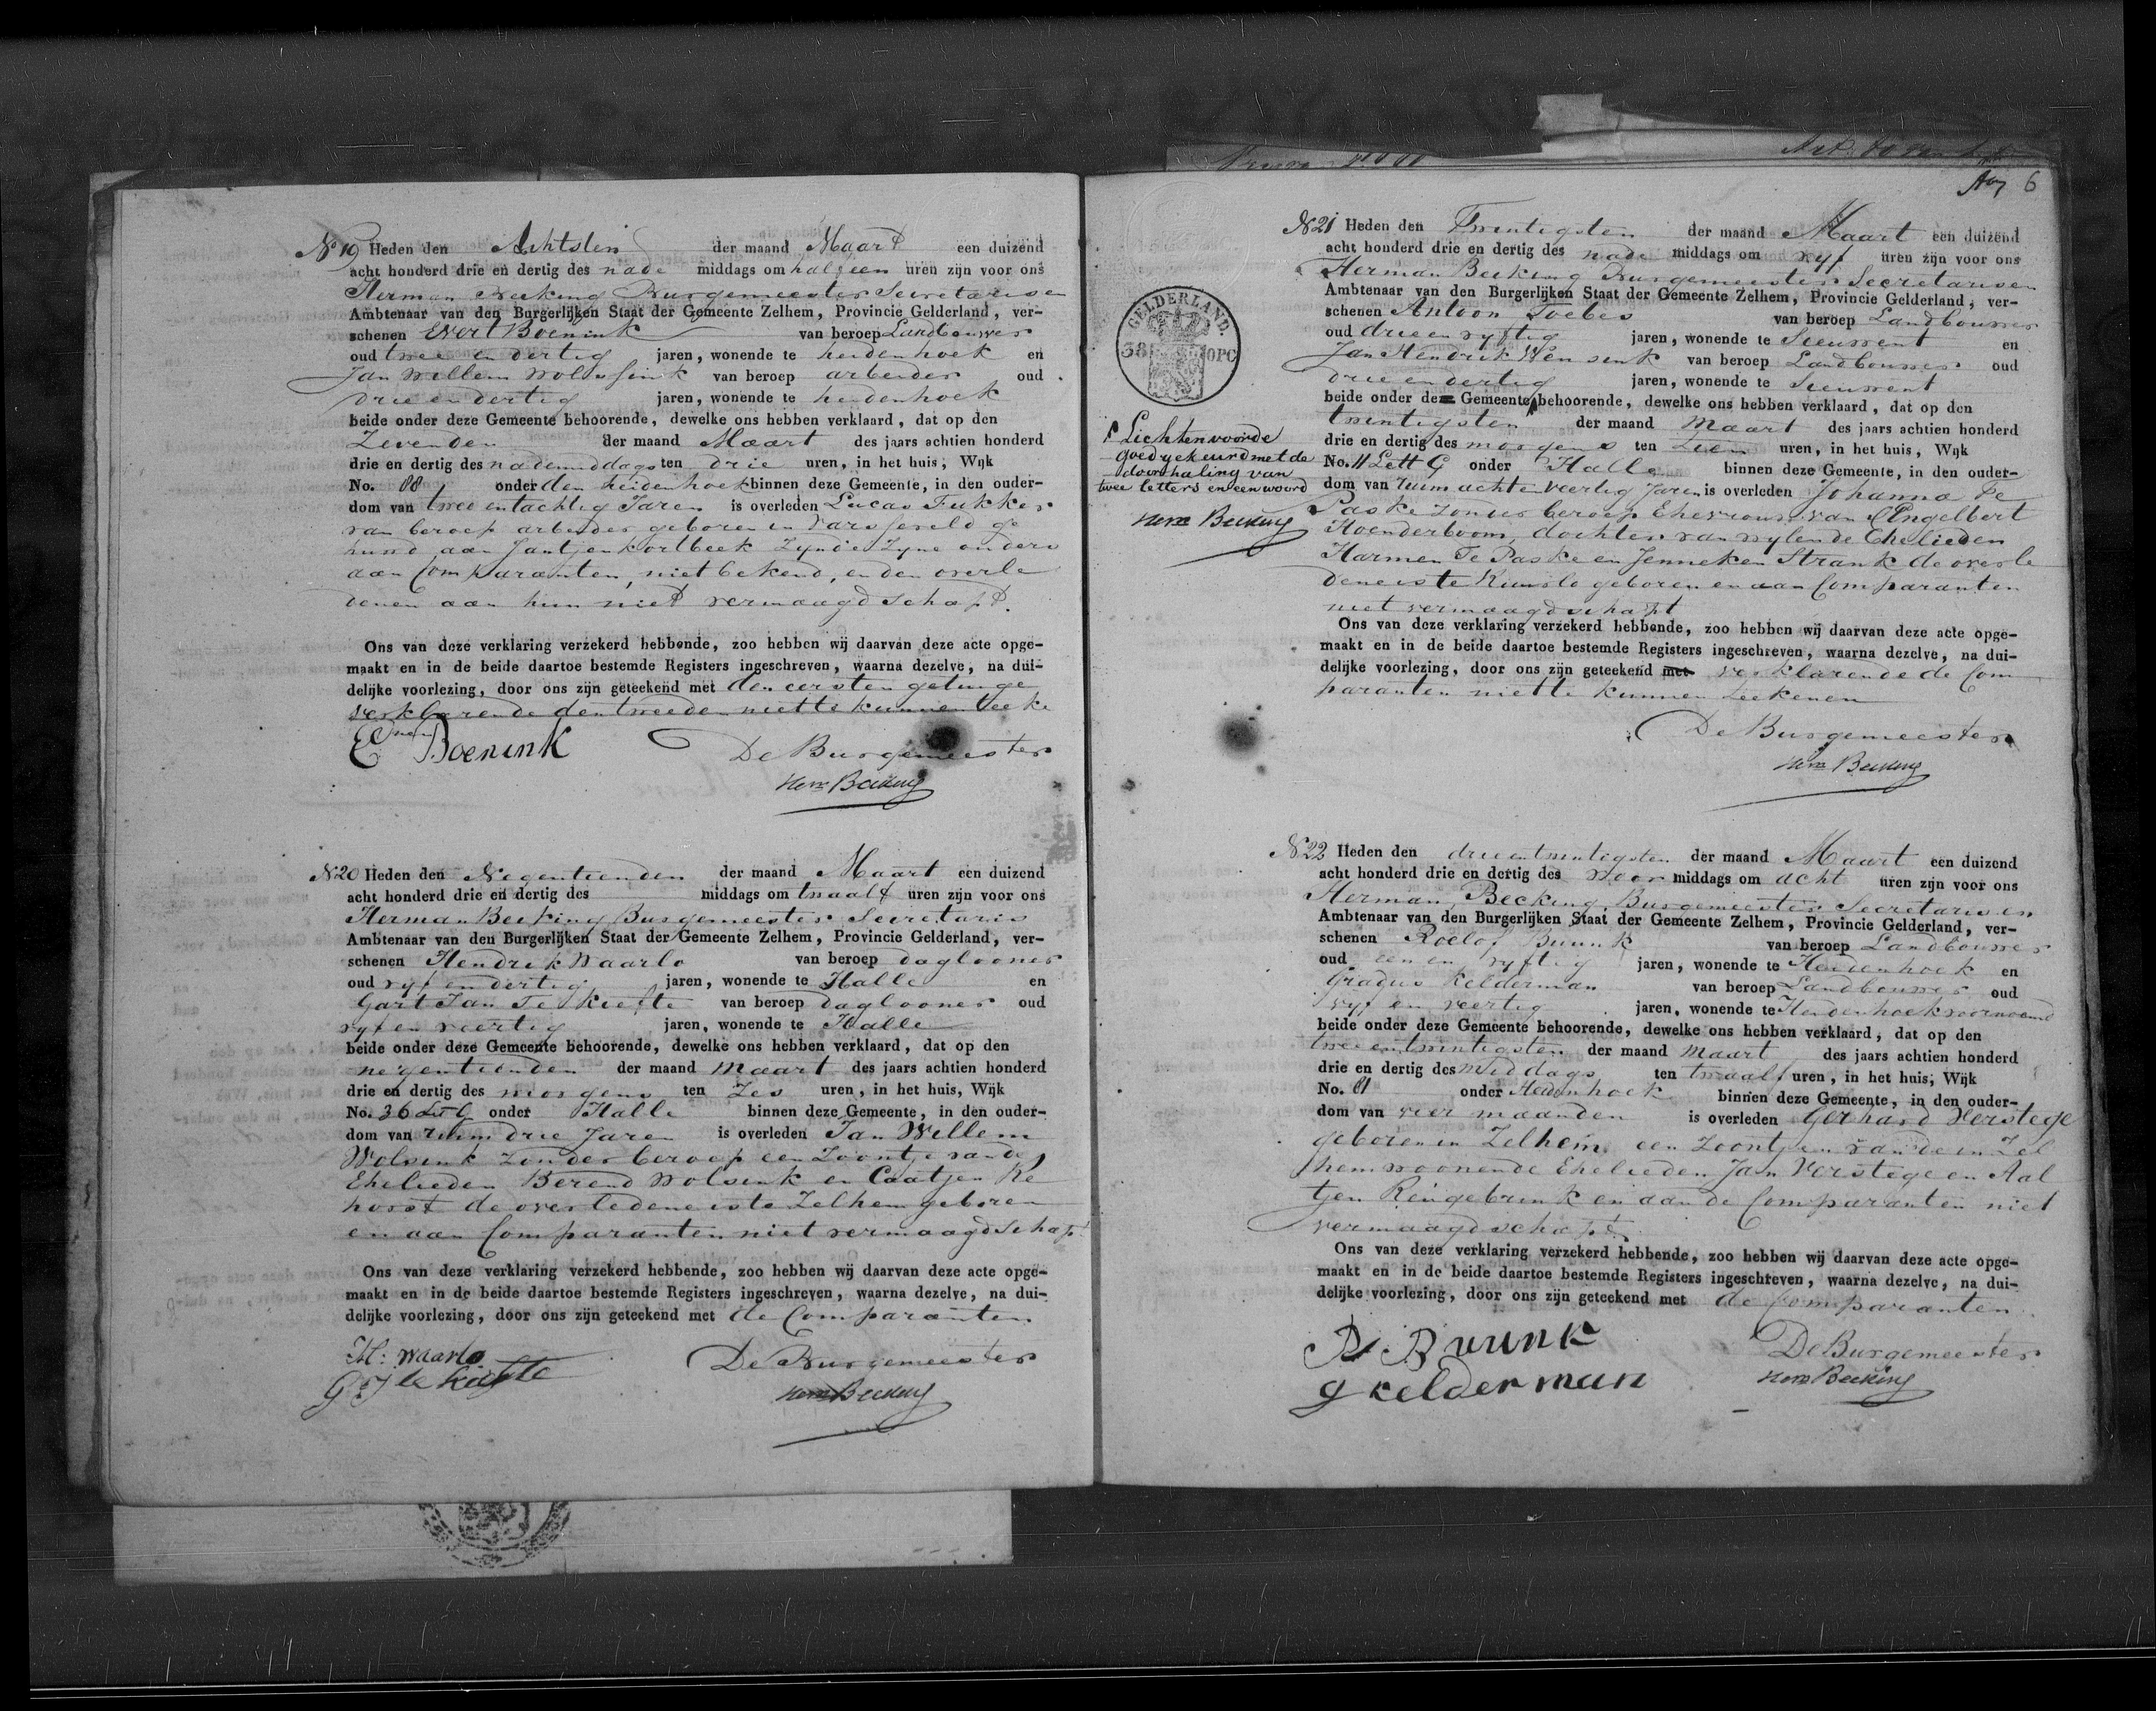 No 19 Heden den Achtsten der maand Maart een duizend
acht honderd drie en dertig des nade middags om half een uren zijn voor ons
Herman Becking Burgemeester Secretaris en
Ambtenaar van den Burgerlijken Staat der Gemeente Zelhem, Provincie Gelderland, ver-
schenen Evert Boenink van beroep Landbouwer
oud twee en dertig jaren, wonende te heidenhoek en
Jan Willem Wolssink van beroep arbeider oud
drie en dertig jaren, wonende te heidenhoek
beide onder deze Gemeente behoorende, dewelke ons hebben verklaard, dat op den
Zevenden der maand Maart des jaars achtien honderd
drie en dertig des nademiddags ten drie uren, in het huis, Wijk
No. 88 onder den heidenhoek binnen deze Gemeente, in den ouder-
dom van twee en tachtig Jaren is overleden Lucas Fukker
van beroep arbeider geboren in Varsseveld ge
huwd aan Jantjen Kortbeek Zynde Zyne ouders
aan Comparanten, niet bekend, en den overle
denen aan hun niet vermaagdschapt.
Ons van deze verklaring verzekerd hebbende, zoo hebben wij daarvan deze acte opge-
maakt en in de beide daartoe bestemde Registers ingeschreven, waarna dezelve, na dui-
delijke voorlezing, door ons zijn geteekend met den eersten getuige
verklarende den tweeden niet te kunnen teeke
nen
E Boenink De Burgemeester
Herm Becking
No 20 Heden den Negentienden der maand Maart een duizend
acht honderd drie en dertig des middags om twaalf uren zijn voor ons
Herman Becking Burgemeester Secretaris
Ambtenaar van den Burgerlijken Staat der Gemeente Zelhem, Provincie Gelderland, ver-
schenen Hendrik Waarlo van beroep daglooner
oud vyf en dertig jaren, wonende te Halle en
Gart Jan Te Kiefte van beroep daglooner oud
vyf en veertig jaren, wonende te Halle
beide onder deze Gemeente behoorende, dewelke ons hebben verklaard, dat op den
negentienden der maand Maart des jaars achtien honderd
drie en dertig des morgens ten Zes uren, in het huis, Wijk
No. 36 Lett G onder Halle binnen deze Gemeente, in den ouder-
dom van ruim drie Jaren is overleden Jan Willem
Wolsink zonder beroep een Zoontje van de
Ehelieden Berend Wolsink en Caatjen Re
horst de overledene is te Zelhem geboren
en aan Comparanten niet vermaagdschapt
Ons van deze verklaring verzekerd hebbende, zoo hebben wij daarvan deze acte opge-
maakt en in de beide daartoe bestemde Registers ingeschreven, waarna dezelve, na dui-
delijke voorlezing, door ons zijn geteekend met de Comparanten
H: Waarlo De Burgemeester
G J te Kiefte Herm Becking
6
No 21 Heden den Twintigsten der maand Maart een duizend
acht honderd drie en dertig des nade middags om vyf uren zijn voor ons
Herman Becking Burgemeester Secretaris en
Ambtenaar van den Burgerlijken Staat der Gemeente Zelhem, Provincie Gelderland, ver-
schenen Antoon Toebes van beroep Landbouwer
oud drie en vyftig jaren, wonende te Sieuwent en
Jan Hendrik Wensink van beroep Landbouwer oud
drie en dertig jaren, wonende te Sieuwent
beide onder de Gemeente behoorende, dewelke ons hebben verklaard, dat op den
twintigsten der maand Maart des jaars achtien honderd
drie en dertig des morgens ten Tien uren, in het huis, Wijk
No. 11 Lett G onder Halle binnen deze Gemeente, in den ouder-
dom van ruim acht en veertig Jaren is overleden Johanna Te
Paske zonder beroep Ehevrouw van Engelbert
Hoenderboom, dochter van wylen de Ehelieden
Harmen Te Paske en Jenneken Strank de overle
dene is te Ruurlo geboren en aan Comparanten
niet vermaagdschapt
Ons van deze verklaring verzekerd hebbende, zoo hebben wij daarvan deze acte opge-
maakt en in de beide daartoe bestemde Registers ingeschreven, waarna dezelve, na dui-
delijke voorlezing, door ons zijn geteekend met verklarende de Com
paranten niet te kunnen teekenen
De Burgemeester
Herm Becking
GELDERLAND.
38 OPC
Lichtenvoorde
goedgekeurd met de
doorhaling van
twee letters en een woord
Herm Becking
No 22 Heden den drie en twintigsten der maand Maart een duizend
acht honderd drie en dertig des voor middags om acht uren zijn voor ons
Herman Becking Burgemeester Secretaris en
Ambtenaar van den Burgerlijken Staat der Gemeente Zelhem, Provincie Gelderland, ver-
schenen Roelof Buunk van beroep Landbouwer
oud een en vyftig jaren, wonende te Heidenhoek en
Gradus Kelderman van beroep Landbouwer oud
vyf en veertig jaren, wonende te Heidenhoek voornoemd
beide onder deze Gemeente behoorende, dewelke ons hebben verklaard, dat op den
twee en twintigsten der maand Maart des jaars achtien honderd
drie en dertig des Middags ten twaalf uren, in het huis, Wijk
No. 81 onder Heidenhoek binnen deze Gemeente, in den ouder-
dom van vier maanden is overleden Gerhard Verstege
geboren in Zelhem een Zoontjen van de in Zel
hem woonende Ehelieden Jan Verstege en Aal
tjen Reugebrink en aan de Comparanten niet
vermaagdschapt
Ons van deze verklaring verzekerd hebbende, zoo hebben wij daarvan deze acte opge-
maakt en in de beide daartoe bestemde Registers ingeschreven, waarna dezelve, na dui-
delijke voorlezing, door ons zijn geteekend met de Comparanten
R Buunk De Burgemeester
g kelderman Herm Becking